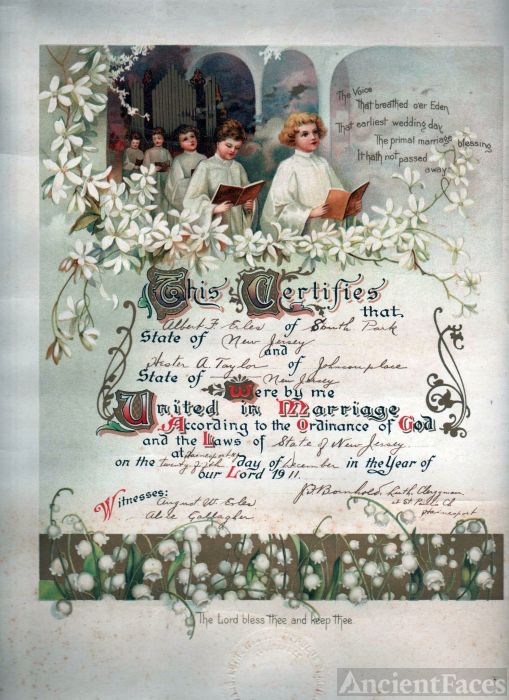 The Voice
That breathed o'er Eden,
That earliest wedding day,
The primal marriage blessing,
It hath not passed
away.
This Certifies
that
Albert F. Erles of South Park
State of New Jersey
and
Hester A. Taylor of Johnson place
State of New Jersey
Were by me
United in Marriage
According to the Ordinance of God
and the Laws of State of New Jersey
at Hainesport
on the day of December in the Year of
our Lord 1911.
Witnesses:
August W. Erles
Alice Gallagher
Luth. Clergyman
at St. Paul's Ch
Hainesport
The Lord bless thee and keep thee.
AncientFaces